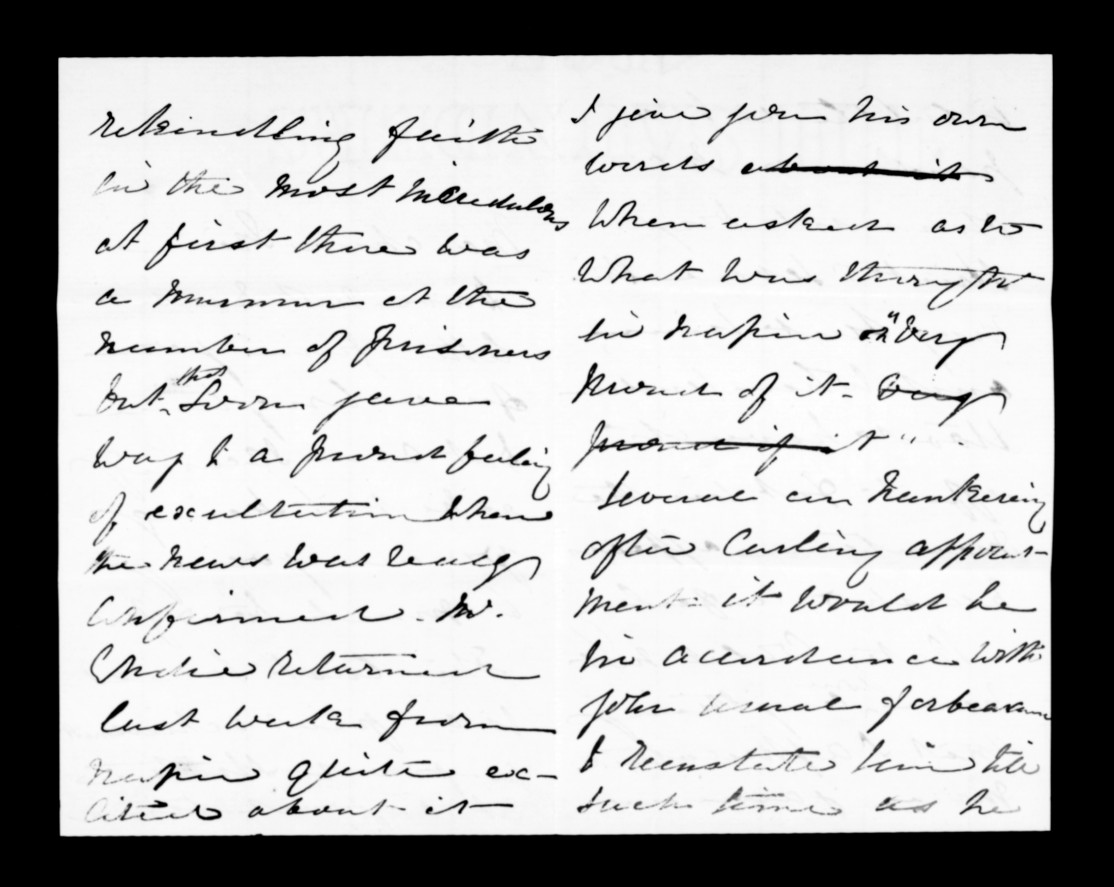 rekindling faith
in the most incredulous
at first there was
a murmur at the
number of prisoners
but that soon gave
way to a proud feeling
of exultation when
the news was really
confirmed. Mr.
returned
last week from
Napier quite ex-
cited about it
I give you his own
words about it
When asked as to
What was thought
in Napier "Very
proud of it. Very
proud of it".
Several are hankering
after Curling appoint-
ment. it would be
in accordance with
your usual forbearance
to reinstate him till
such time as he